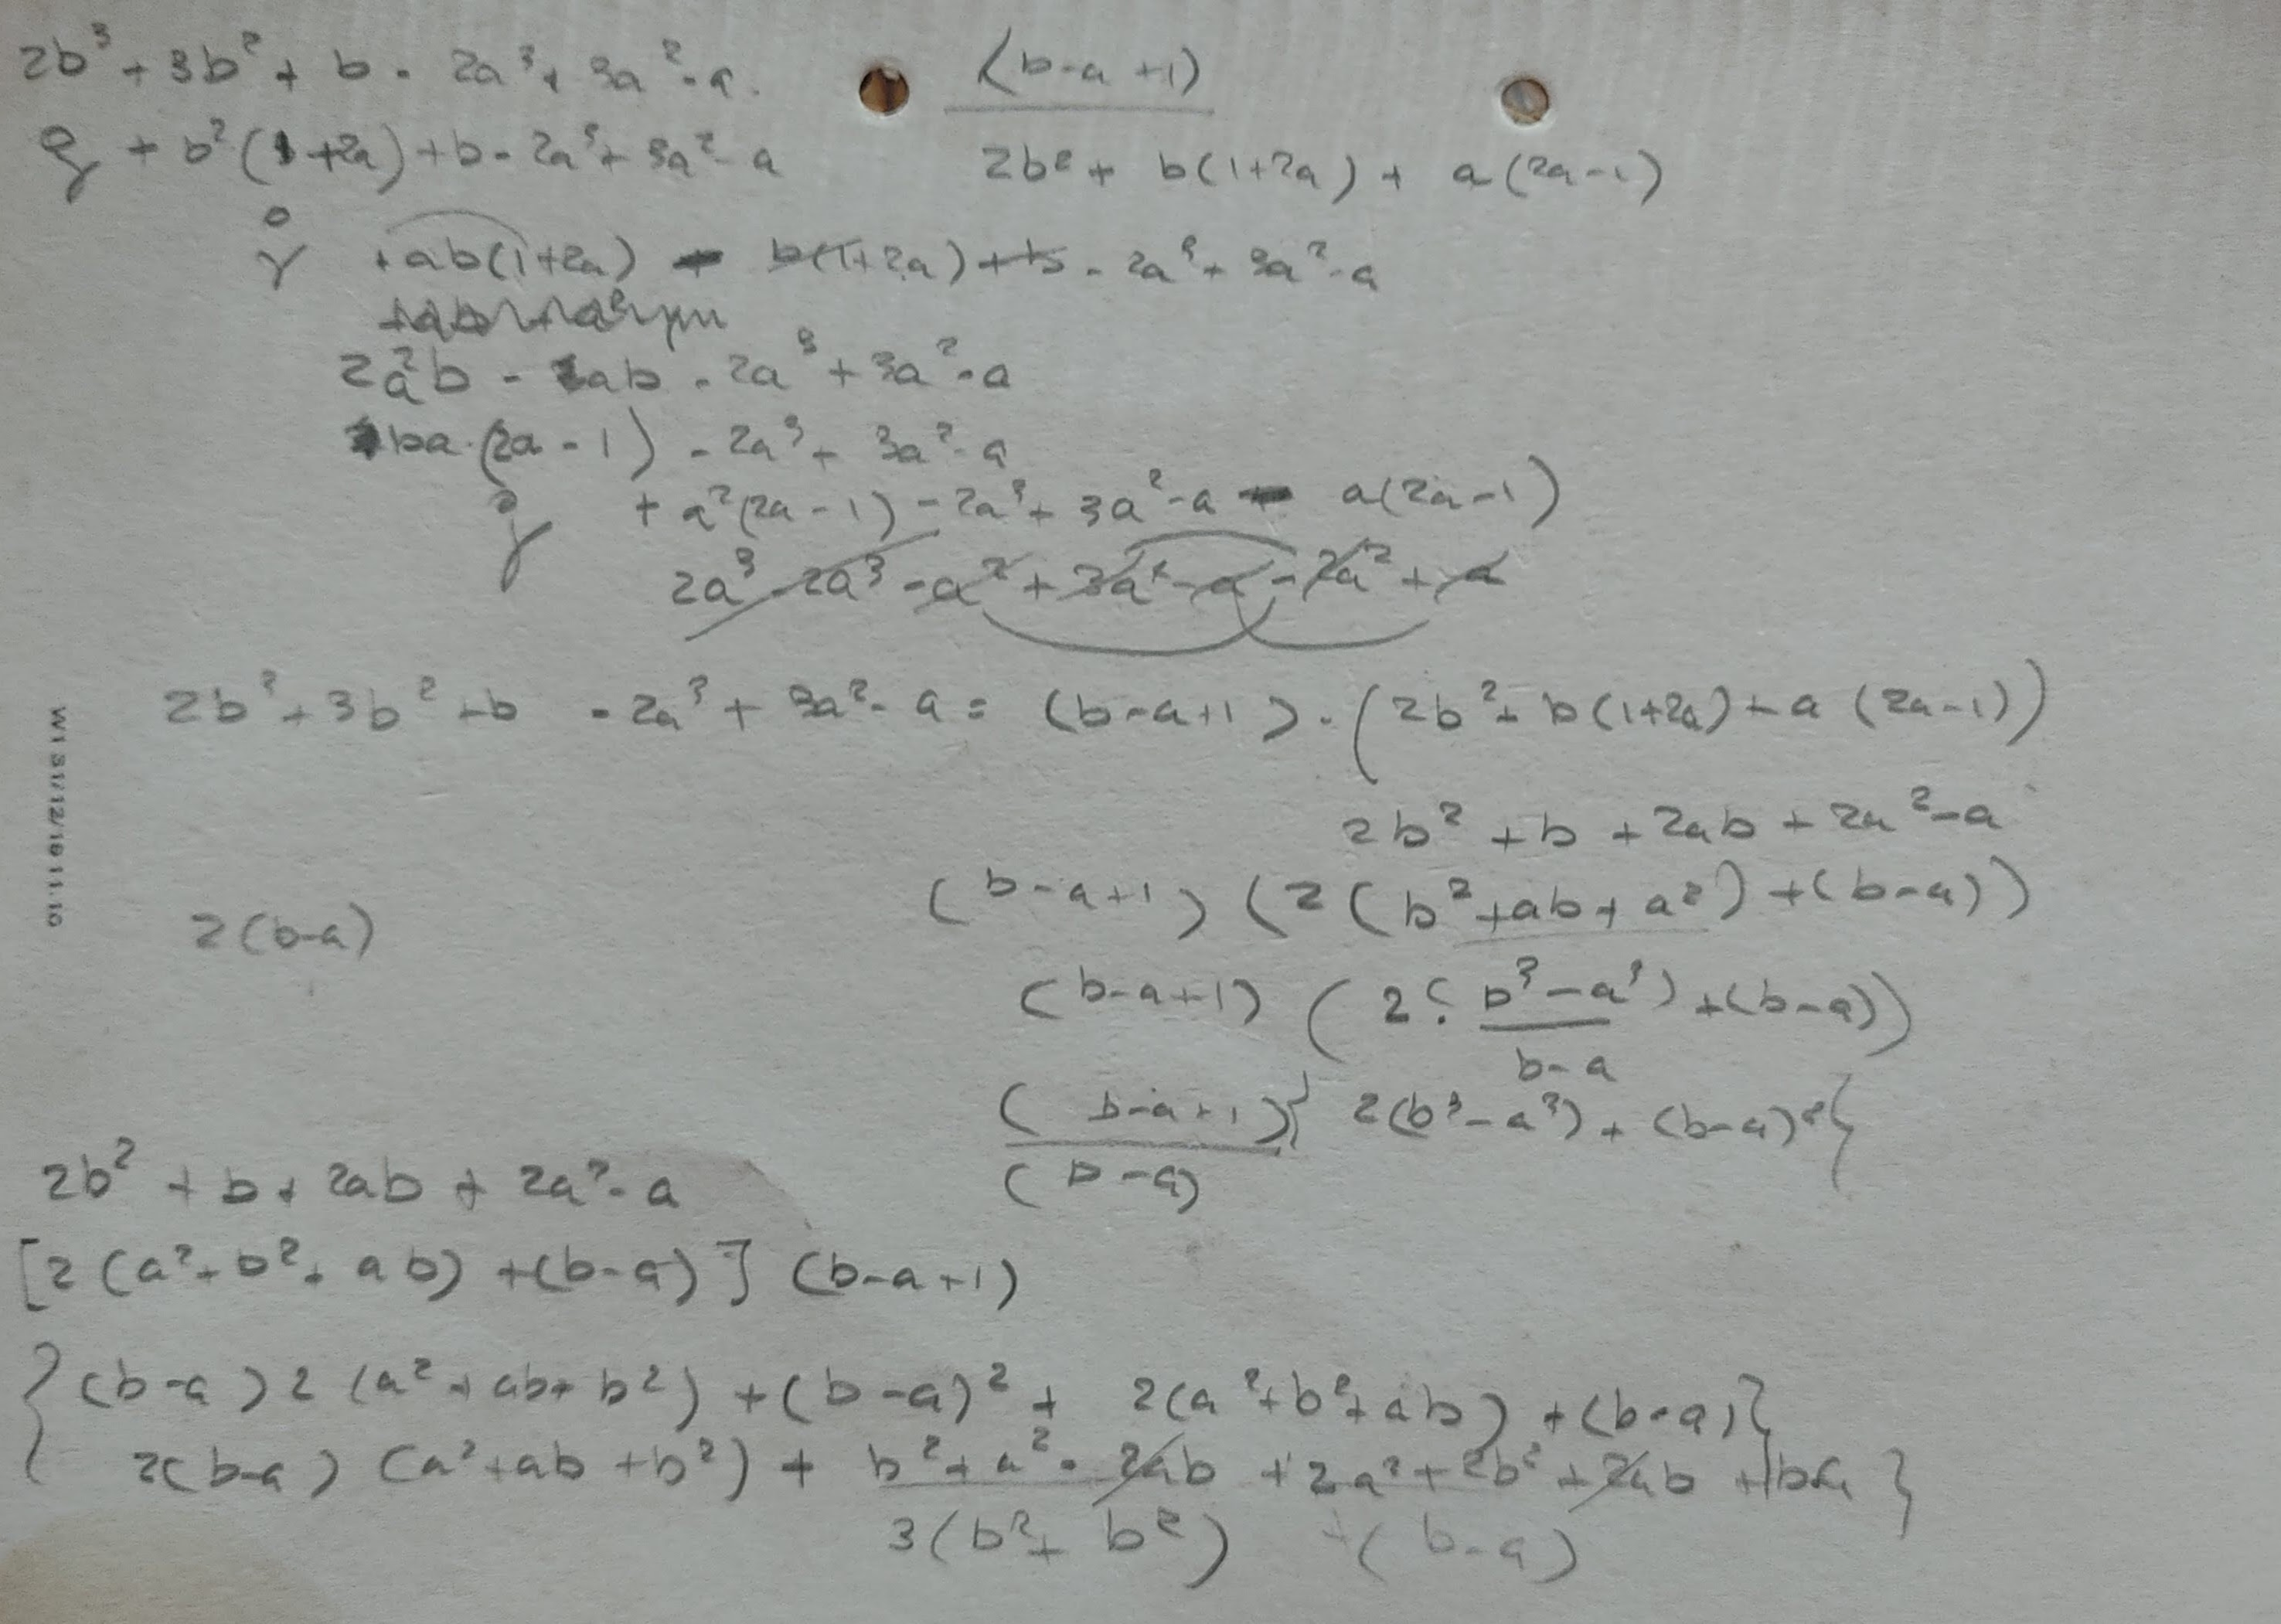 2b³ + 3b² + b - 2a³ + 3a² - a.
(b-a+1)
+ b²(1+2a) + b - 2a³ + 3a² - a
2b² + b(1+2a) + a(2a-1)
0
+ab(1+2a) - b(1+2a) + b - 2a³ + 3a² - a
2a²b - ab - 2a³ + 3a² - a
ba.(2a-1) - 2a³ + 3a² - a
+ a²(2a-1) - 2a³ + 3a² - a - a(2a-1)
2a³ - 2a³ - a² + 3a² - a - 2a² + a
2b³ + 3b² + b - 2a³ + 3a² - a = (b-a+1).(2b² + b(1+2a) + a(2a-1))
2b² + b + 2ab + 2a² - a
(b-a+1)(2(b²+ab+a²)+(b-a))
2(b-a)
(b-a+1)(2(b³-a³)+(b-a))
b-a
(b-a+1)} 2(b³-a³) + (b-a)² {
(b-a)
2b² + b + 2ab + 2a² - a
[2(a²+b²+ab)+(b-a)](b-a+1)
{(b-a)2(a²+ab+b²)+(b-a)²+ 2(a²+b²+ab)+(b-a)}
2(b-a)(a²+ab+b²) + b²+a²-2ab + 2a²+2b²+2ab + b-a }
3(b²+b²) +(b-a)
W1 31/12/19 11:10